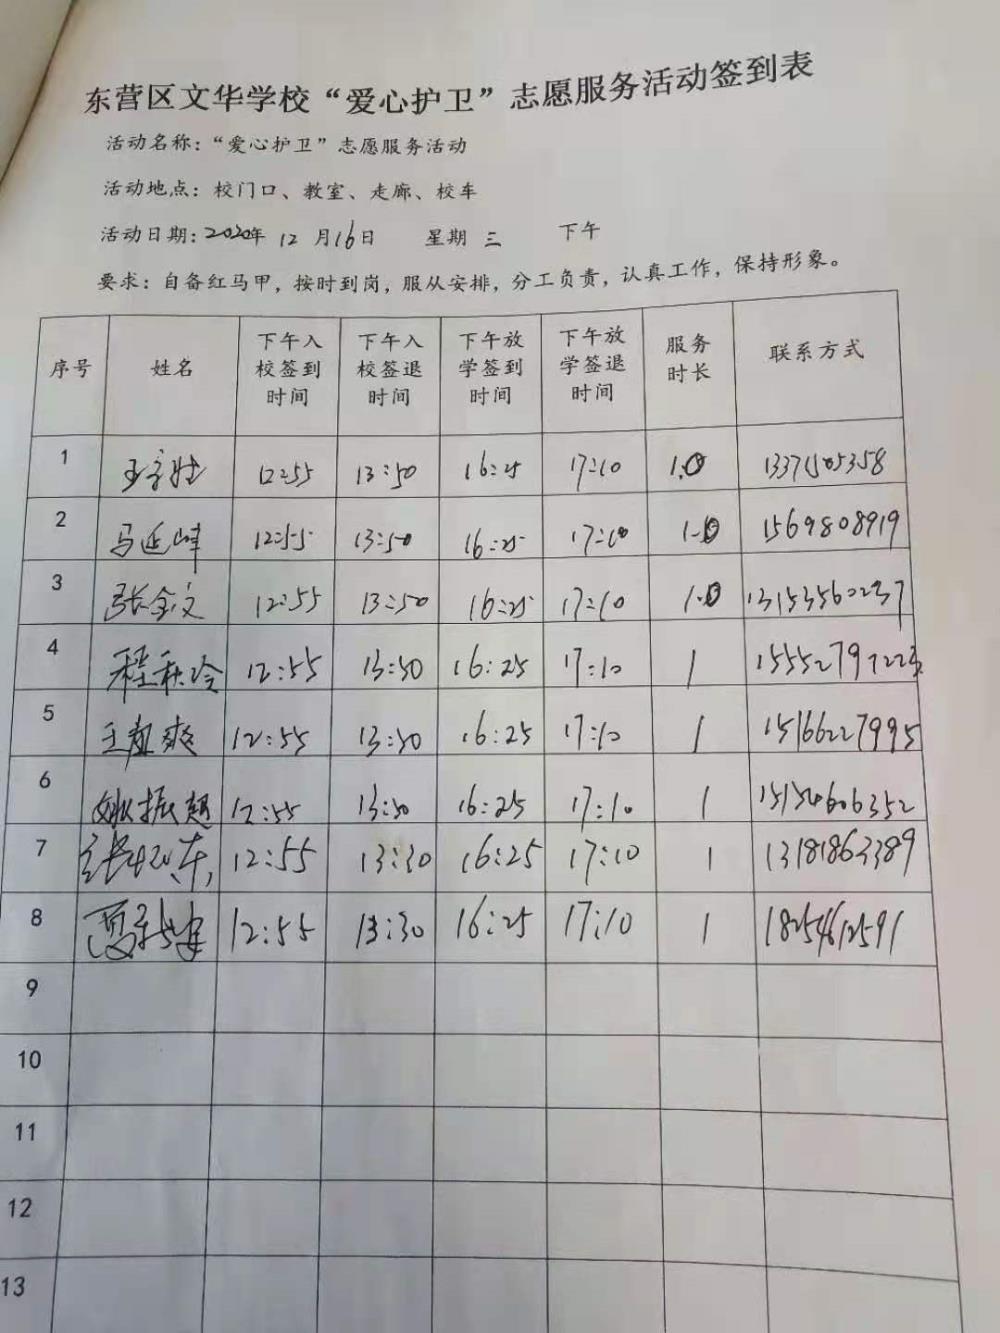 东营区文华学校“爱心护卫”志愿服务活动签到表
活动名称：“爱心护卫”志愿服务活动
活动地点：校门口、教室、走廊、校车
活动日期：2020年 12 月16日 星期 三 下午
要求：自备红马甲，按时到岗，服从安排，分工负责，认真工作，保持形象。
序号 姓名 下午入校签到时间 下午入校签退时间 下午放学签到时间 下午放学签退时间 服务时长 联系方式
1 12:55 13:50 16:25 17:10 1.0 13371505358
2 马延峰 12:55 13:50 16:25 17:10 1.0 1569808919
3 张金文 12:55 13:50 16:25 17:10 1.0 13153560237
4 程秋冷 12:55 13:30 16:25 17:10 1
5 12:55 13:30 16:25 17:10 1 15166227995
6 姚振超 12:55 13:30 16:25 17:10 1 15154606352
7 12:55 13:30 16:25 17:10 1 13181863389
8 12:55 13:30 16:25 17:10 1 18254612591
9
10
11
12
13